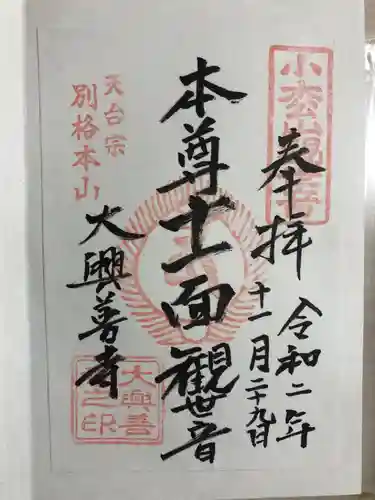 奉拝
令和二年
十一月二十九日
本尊十一面観世音
大興善寺
天台宗
別格本山
小松山観音寺
大興善寺之印